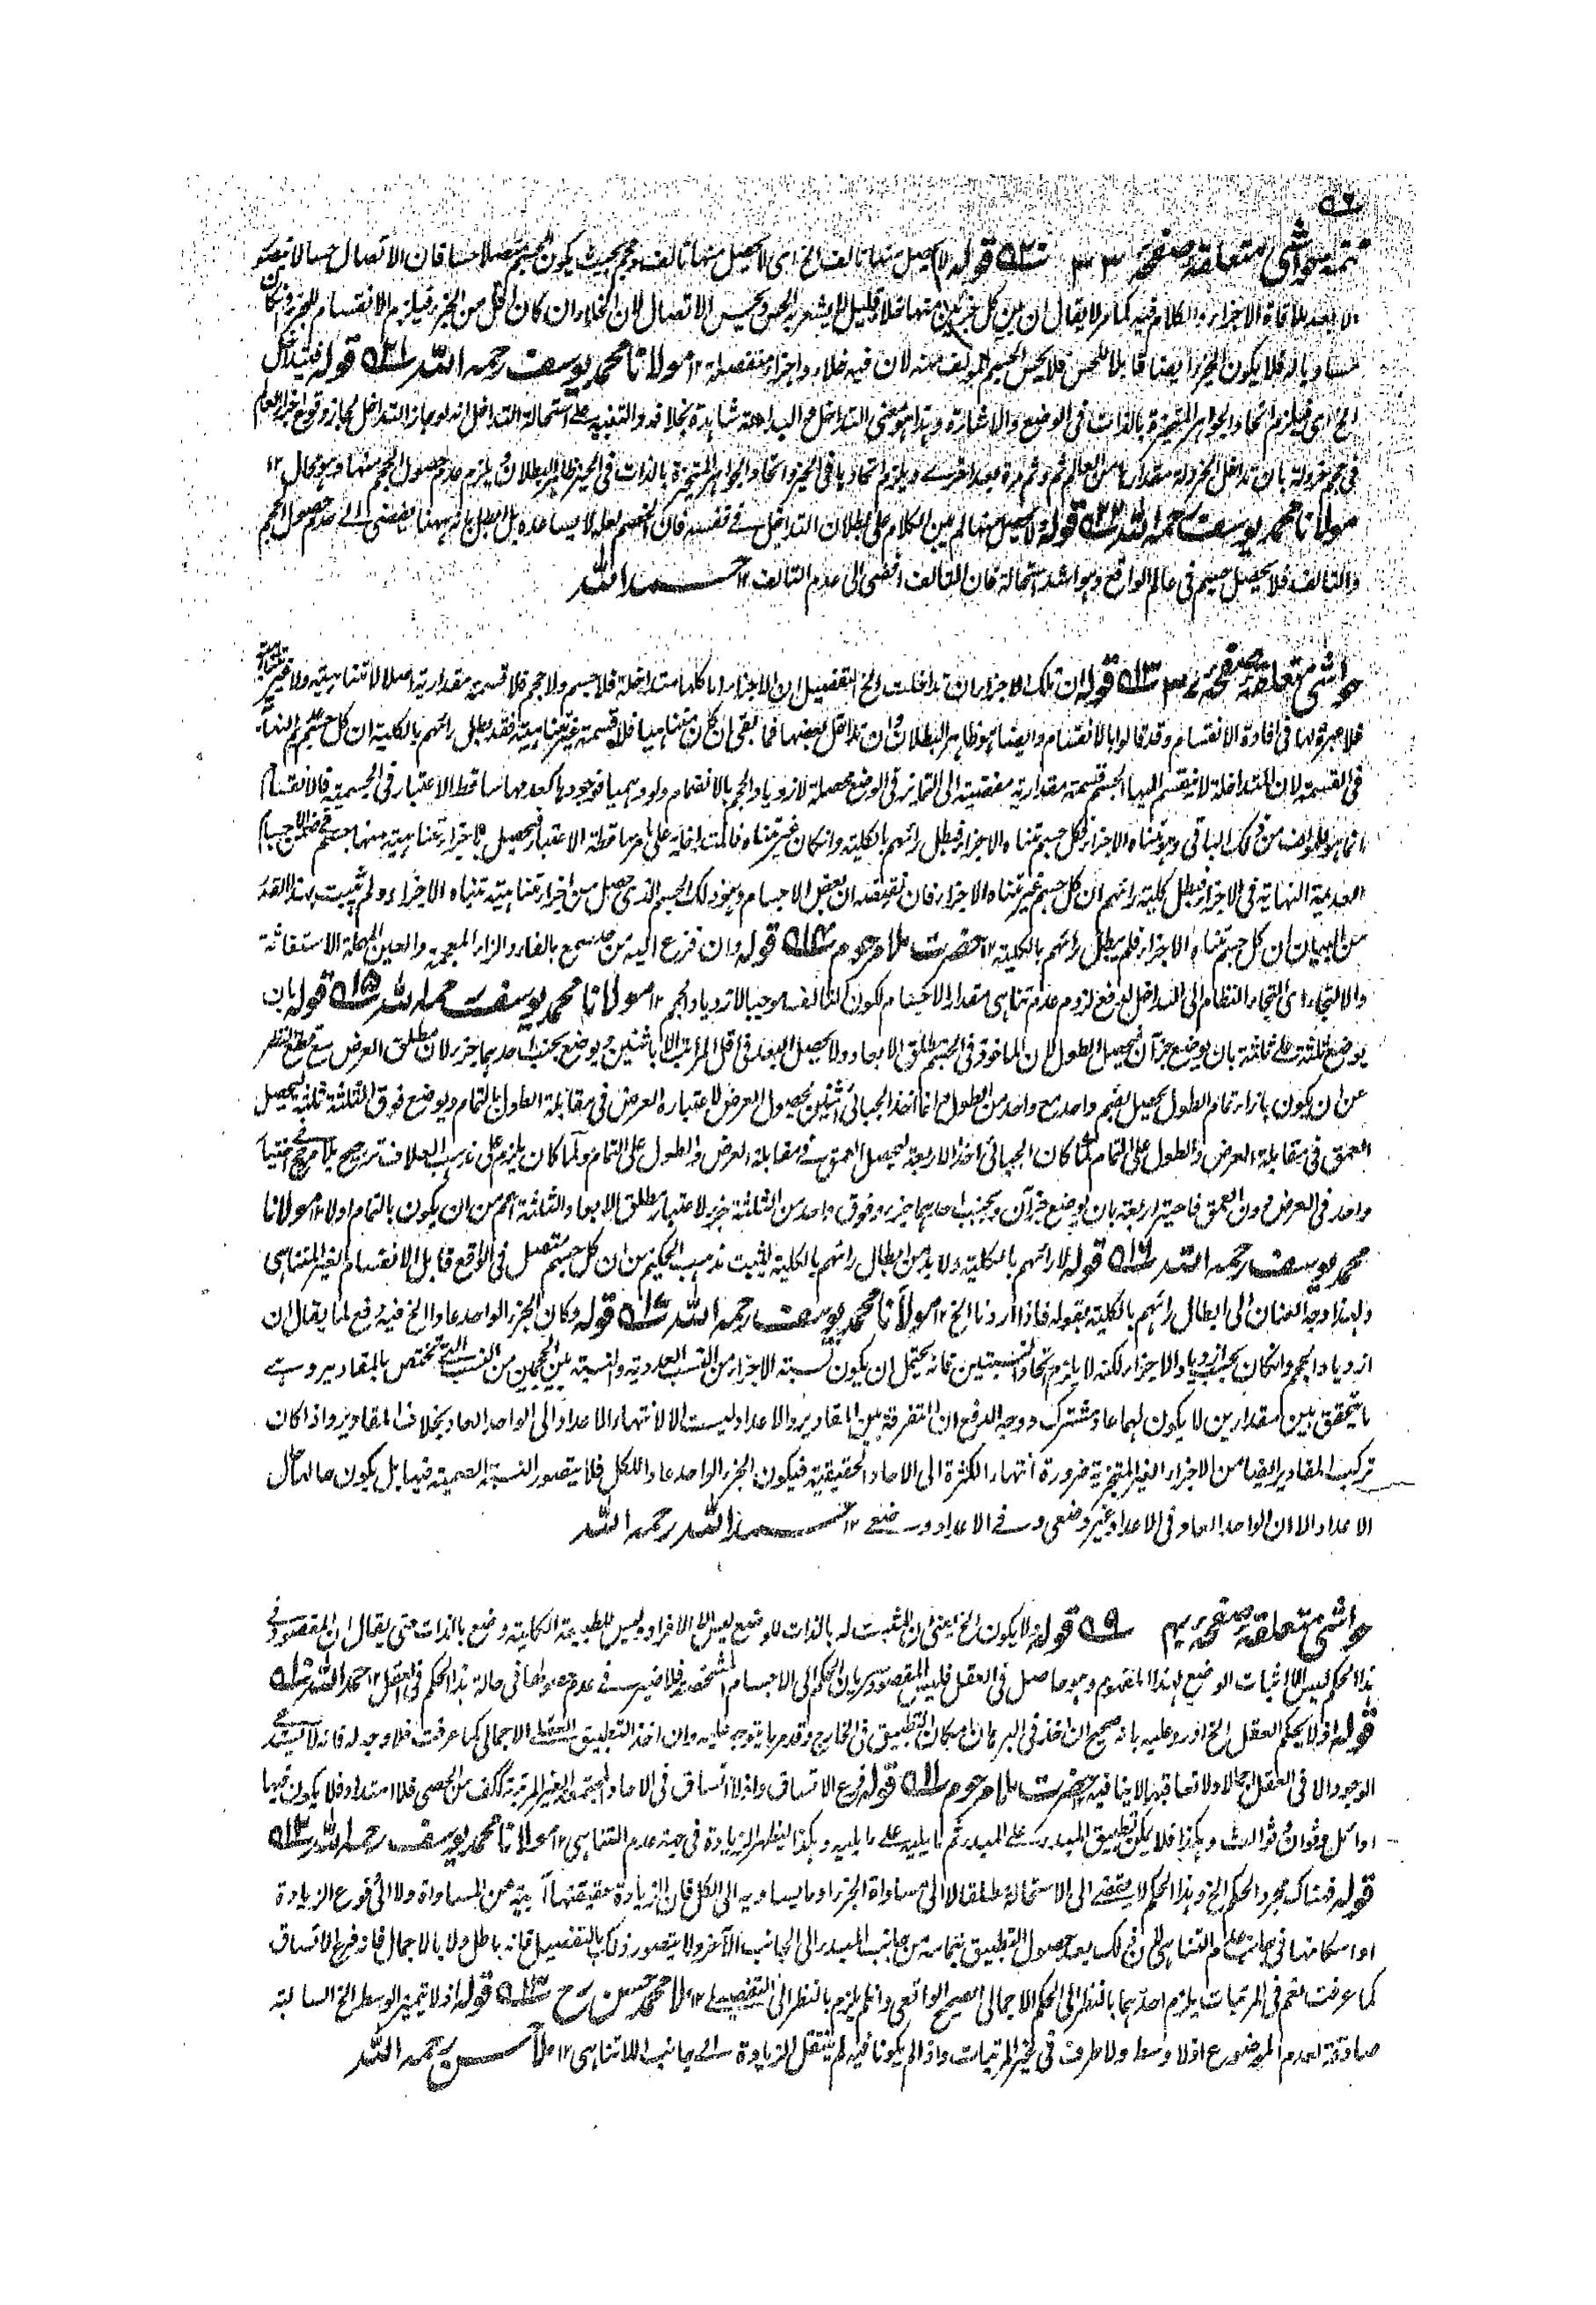 ٥٢
تتمة حواشی متعلقہ صفحہ ٣٣ قوله لا يحصل منها تالف الخ اى لا يحصل منها تالف وحجم بحيث يكون الجسم متصلا حسا فان الاتصال حسا لا يتصور
الا بعد ملاقاة الاجزاء والكلام فيه كما مر لا يقال ان بين كل جزئين منها خلاء قليل لا يشعر به الحس ويحس الاتصال لان الخلاء ان كان اقل من الجزء فيلزم الانقسام للجزء وان كان
مساويا له فلا يكون الجزء ايضا قابلا للحس فلا يحس الجسم المؤلف منه لان فيه خلاء واجزاء منفصلة ١٢ مولانا محمد يوسف رحمه الله قوله فيتداخل
الخ اى فيلزم اتحاد الجواهر المتحيزة بالذات فى الوضع والاشارة وهذا هو معنى التداخل مع البداهة شاهدة بخلافه والتنبيه على استحالة التداخل انه لو جاز التداخل لجاز وقوع اجزاء العالم
فى حجم خردلة بان تداخل الخردلة مقدارها من العالم ثم وثم مرة بعد اخرى ويلزم اتحادها فى الحيز واتحاد الجواهر المتحيزة بالذات فى الحيز ظاهر البطلان ويلزم عدم حصول الحجم منها وهو محال ١٢
مولانا محمد يوسف رحمه الله قوله لا يحصل منها لم يبن الكلام على بطلان التداخل فى نفسه فان الخصم لعله لا يساعده بل ابطل بانه ههنا يفضى الى عدم حصول الحجم
والتالف فلا يحصل جسم فى عالم الواقع وهو اشد استحالة فان التالف افضى الى عدم التالف ١٢ حمد الله
حواشی متعلقہ صفحہ قوله ان تلك الاجزاء ان تداخلت الخ التفصيل ان الاجزاء اما كلها متداخلة فلا جسم ولا حجم فلا قسمة مقدارية اصلا لا متناهية ولا غير متناهية
فلا عبرة لها فى افادة الانقسام وقد قالوا بالانقسام وايضا هو ظاهر البطلان وان تداخل بعضها فما بقى ان كان متناهيا فلا قسمة غير متناهية فقد بطل رائهم بالكلية ان كل جسم عديم النهاية
فى القسمة لان المتداخلة لا ينقسم اليها الجسم قسمة مقدارية مفضية الى التمايز فى الوضع محصلة لازدياد الحجم بالانضمام ولو وهميا فوجودها كعدمها ساقط الاعتبار فى الجسمية فالانقسام
انما هو للمؤلف من ذلك الباقى وهو متناه الاجزاء فكل جسم متناه الاجزاء فبطل رائهم بالكلية وان كان غير متناه فالمتداخلة على ما مر ساقطة الاعتبار فيحصل باجزاء متناهية منها جسم فى ضمن الاجسام
العديمة النهاية فى الاجزاء فبطل كلية رائهم ان كل جسم غير متناه الاجزاء فان نقيضه ان بعض الاجسام وهو ذلك الجسم الذى حصل من اجزاء متناهية متناه الاجزاء ولم يثبت بهذا القدر
من البيان ان كل جسم متناه الاجزاء فلم يبطل رائهم بالكلية ١٢ حضرت ملا مرحوم قوله وان فزع اليه من حد سمع بالفاء والزاء المعجمة والعين المهملة الاستغاثة
والالتجاء اى التجاء النظام الى التداخل ليدفع لزوم عدم تناهى مقدار الاجسام لكون التالف موجبا لازدياد الحجم ١٢ مولانا محمد يوسف رحمه الله قوله بان
يوضع ثلثة على ثلثة بان يوضع جزآن ليحصل الطول لان الماخوذ فى الجسم مطلق الابعاد ولا يحصل البعد فى اقل المراتب الا باثنين ويوضع بجنب احدهما جزء لان مطلق العرض مع قطع النظر
عن ان يكون بازاء تمام الطول يحصل بضم واحد مع واحد من الطول وانما اخذ الجبائى اثنين لحصول العرض لاعتباره العرض فى مقابلة الطول بالتمام ويوضع فوق الثلثة ثلثة ليحصل
العمق فى مقابلة العرض والطول على التمام كما كان الجبائى اخذ الاربعة ليحصل العمق فى مقابلة العرض والطول على التمام ولما كان يلزم على مذهب العلاف ترجيح بلا مرجح فى اختيار
واحد فى العرض دون العمق فاعتبر اربعة بان يوضع جزآن وبجنب احدهما جزء وفوق واحد من الثلثة جزء لاعتبار مطلق الابعاد الثلثة اعم من ان يكون بالتمام او لا ١٢ مولانا
محمد يوسف رحمه الله قوله لا رائهم بالكلية ولا بد من ابطال رائهم بالكلية ليثبت مذهب الحكيم من ان كل جسم متصل فى الواقع قابل الانقسام الغير المتناهى
ولهذا وجه العنان الى ابطال رائهم بالكلية بقوله فاذا اردنا الخ ١٢ مولانا محمد يوسف رحمه الله قوله وكان الجزء الواحد عادا الخ فيه دفع لما يقال ان
ازدياد الحجم وان كان بحسب ازدياد الاجزاء لكنه لا يلزم اتحاد النسبتين فانه يحتمل ان يكون نسبة الاجزاء من النسب العددية والنسبة بين الحجمين من النسب التى تختص بالمقادير وهى
ما يتحقق بين مقدارين لا يكون لهما عاد مشترك ووجه الدفع ان التفرقة بين المقادير والاعداد ليست الا لانتهاء الاعداد الى الواحد العاد بخلاف المقادير واذا كان
تركيب المقادير ايضا من الاجزاء الغير المتجزية ضرورة انتهاء الكثرة الى الآحاد الحقيقية فيكون الجزء الواحد عادا للكل فلا يتصور النسبة الصمية فيها بل يكون حالها كحال
الاعداد الا ان الواحد العاد فى الاعداد غير وضعى وفى الاعداد وضعى ١٢ حمد الله رحمه الله
حواشی متعلقہ صفحہ قوله لا يكون الخ يعنى ان المثبت له بالذات للوضع ليس الا الافراد وليس للطبيعة الكلية وضع بالذات حتى يقال ان المقصود فى
هذا الحكم ليس الا اثبات الوضع لهذا المفهوم وهو حاصل فى العقل فليس المقصود سريان الحكم الى الاجسام المشخصة فلا ضير فى عدم حصولها فى حالة هذا الحكم فى العقل ١٢ حمد الله
قوله اذ لا يحكم العقل الخ اورد عليه بانه صحيح ان اخذ فى البرهان امكان التطبيق فى الخارج وقد مر ما يتوجه عليه وان اخذ التطبيق العقلى الاجمالى كما عرفت فلا وجه له فانه لا يستدعى
الوجود الا فى العقل اجمالا ولا تعاقبه لا ينافيه حضرت ملا مرحوم قوله فرع الاتساق واذ لا اتساق فى الآحاد المجتمعة الغير المرتبة ككف من الحصى فلا امتداد فلا يكون فيها
اوائل وثوان وثوالث وهكذا فلا يمكن تطبيق المبدء على المبدء ثم ما يليه على ما يليه وهكذا ليظهر الزيادة فى جهة عدم التناهى ١٢ مولانا محمد يوسف رحمه الله
قوله فهناك مجرد الحكم الخ وهذا الحكم لا يفضى الى الاستحالة مطلقا لا الى مساواة الجزء او ما يساويه الى الكل فان الزيادة حقيقتها آبية عن المساواة ولا الى وقوع الزيادة
او امكانها فى جانب عدم التناهى لان ذلك بعد حصول التطبيق بتمامه من جانب المبدء الى الجانب الآخر ولا يتصور ذلك بالتفصيل فانه باطل ولا بالاجمال فانه فرع الاتساق
كما عرفت نعم فى المرتبات يلزم احدهما بالنظر الى الحكم الاجمالى الصحيح الواقعى وان لم يلزم بالنظر الى التفصيلى ١٢ ملا محمد حسن رح قوله اذ لا تميز الوسط الخ السالبة
صادقة لعدم الموضوع اذ لا وسط ولا طرف فى غير المرتبات واذا لم يكونا فيه لم ينتقل الزيادة الى جانب اللاتناهى ١٢ ملا حسن رحمه الله